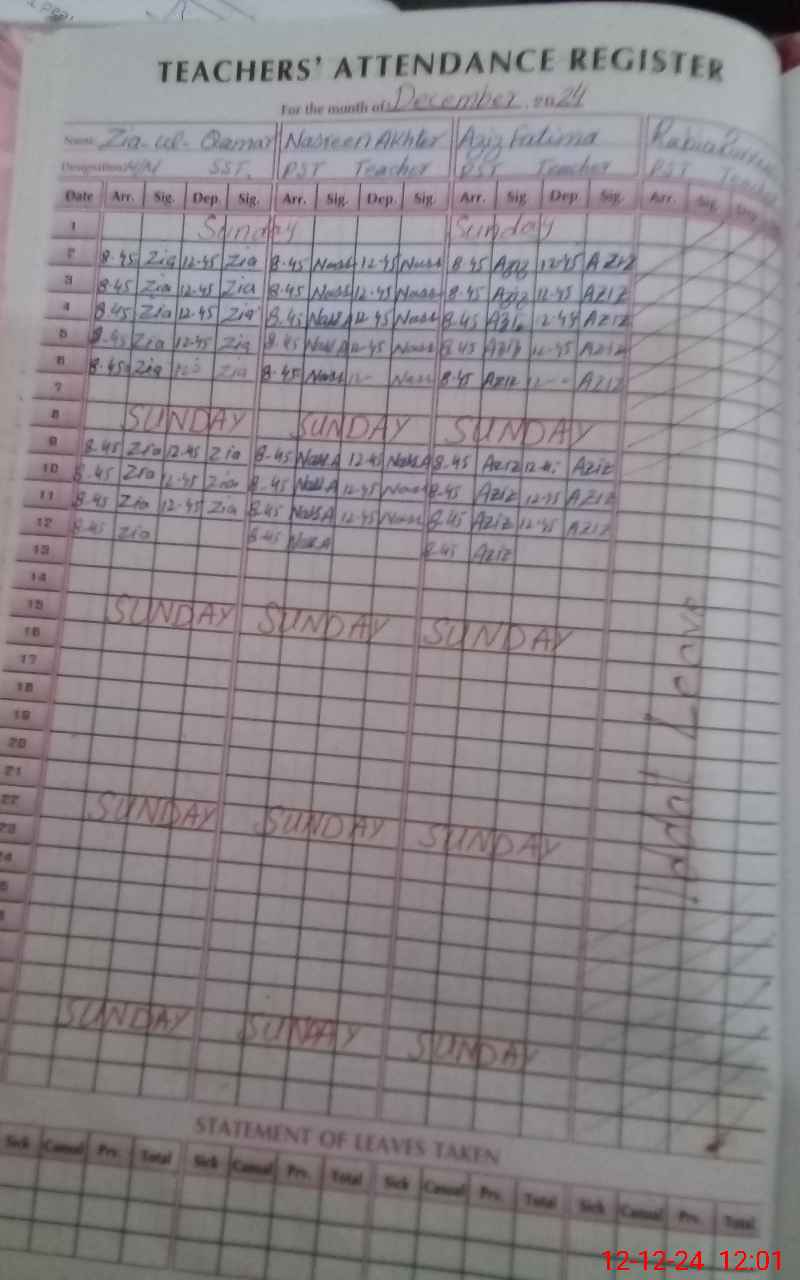 TEACHERS' ATTENDANCE REGISTER
For the month of December 2024
Name Zia-ul-Qamar Nasreen Akhter Aziz Fatima Rabia
Designation SST. PST Teacher PST Teacher PST Teacher
Date Arr. Sig. Dep. Sig. Arr. Sig. Dep. Sig. Arr. Sig. Dep. Sig. Arr. Sig. Dep.
1 Sunday Sunday
2 8.45 Zia 12-45 Zia 8.45 12-45 8.45 Aziz 12-45 AZIZ
3 8.45 Zia 12-45 Zia 8.45 12-45 8.45 Aziz 12-45 AZIZ
4 8.45 Zia 12-45 Zia 8.45 12-45 8.45 Aziz 12-45 AZIZ
5 8.45 Zia 12-45 Zia 8.45 12-45 8.45 Aziz 12-45 AZIZ
6 8.45 Zia Zia 8.45 8.45 AZIZ AZIZ
7
8 SUNDAY SUNDAY SUNDAY
9 8.45 Zia 12.45 Zia 8.45 Nass A 12-45 Nass A 8.45 AZIZ Aziz
10 8.45 Zia 12-45 Zia 8.45 Nass A 12-45 8.45 AZIZ 12-45 AZIZ
11 8.45 Zia 12-45 Zia 8.45 Nass A 12-45 8.45 AZIZ 12-45 AZIZ
12 8.45 Zia 8.45 Nass A 8.45 AZIZ
13
14
15 SUNDAY SUNDAY SUNDAY
16
17
18
19
20
21
22 SUNDAY SUNDAY SUNDAY
23
SUNDAY SUNDAY SUNDAY
Iddat Leave
STATEMENT OF LEAVES TAKEN
Sick Casual Prv. Total Sick Casual Prv. Total Sick Casual Prv. Total Sick Casual Prv. Total
12-12-24 12:01